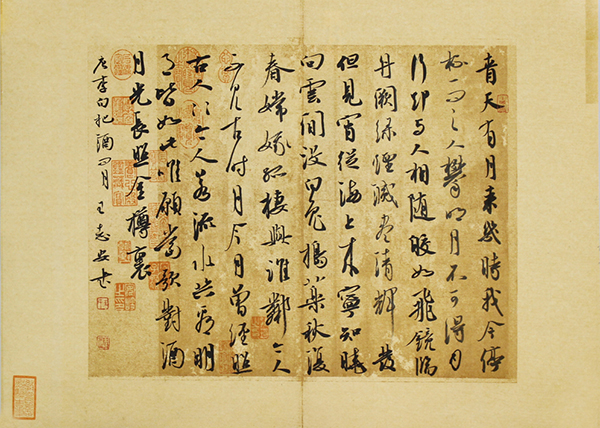 青天有月来幾時我今停
杯一問之人攀明月不可得月
行却与人相随皎如飛鏡臨
丹闕綠煙滅盡清輝發
但見宵從海上来寧知曉
向雲間没白兔搗藥秋復
春嫦娥孤棲與誰鄰今人
不見古时月今月曾經照
古人古人今人若流水共看明
月皆如此唯願當歌對酒
月光長照金樽裏
唐李白把酒问月 王志安书